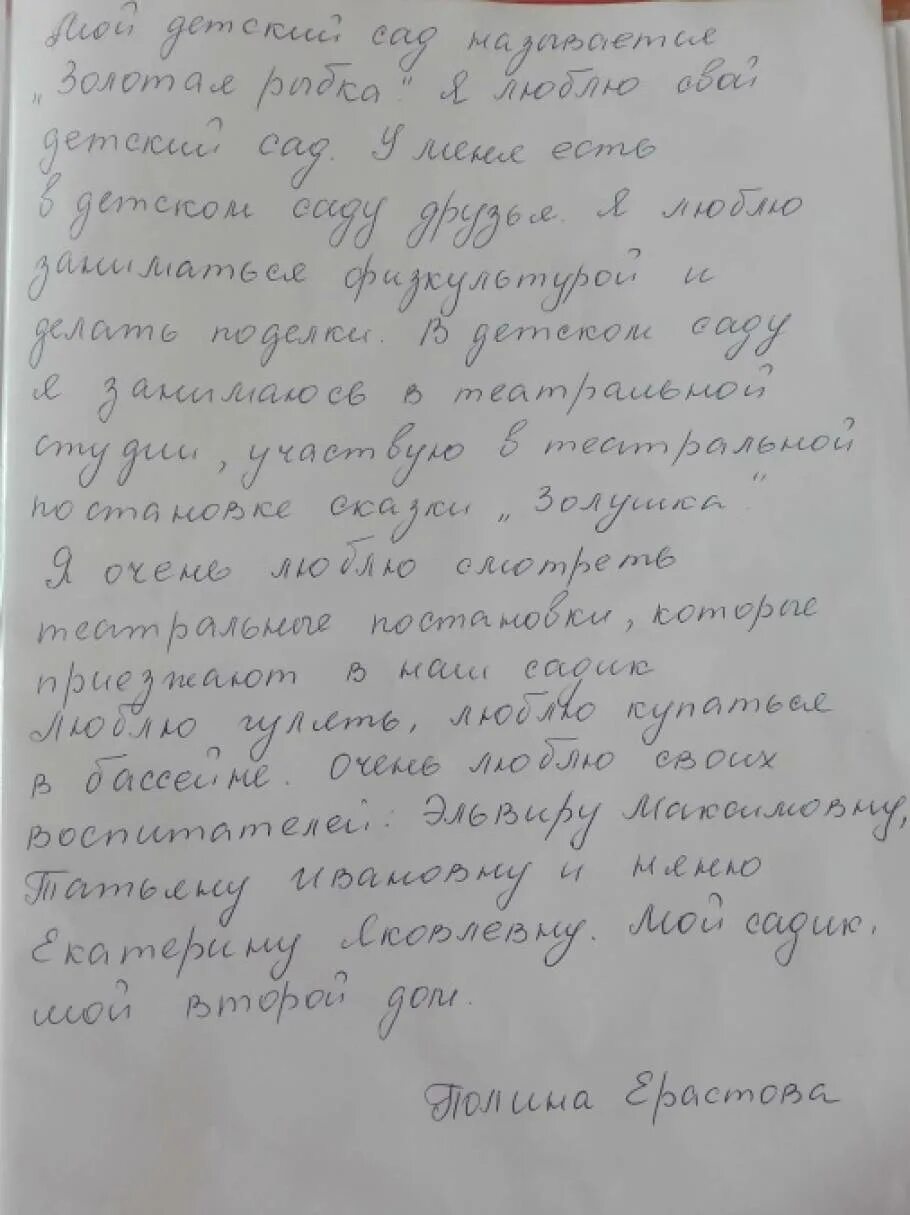 Мой детский сад называется
„Золотая рыбка“. Я люблю свой
детский сад. У меня есть
в детском саду друзья. Я люблю
заниматься физкультурой и
делать поделки. В детском саду
я занимаюсь в театральной
студии, участвую в театральной
постановке сказки „Золушка“
Я очень люблю смотреть
театральные постановки, которые
приезжают в наш садик
Люблю гулять, люблю купаться
в бассейне. Очень люблю своих
воспитателей: Эльвиру Максимовну,
Татьяну Ивановну и няню
Екатерину Яковлевну. Мой садик,
мой второй дом.
Полина Ерастова